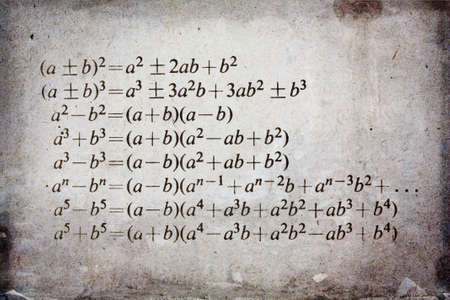 (a ± b)² = a² ± 2ab + b²
(a ± b)³ = a³ ± 3a²b + 3ab² ± b³
a² − b² = (a + b)(a − b)
a³ + b³ = (a + b)(a² − ab + b²)
a³ − b³ = (a − b)(a² + ab + b²)
aⁿ − bⁿ = (a − b)(aⁿ⁻¹ + aⁿ⁻²b + aⁿ⁻³b² + …
a⁵ − b⁵ = (a − b)(a⁴ + a³b + a²b² + ab³ + b⁴)
a⁵ + b⁵ = (a + b)(a⁴ − a³b + a²b² − ab³ + b⁴)